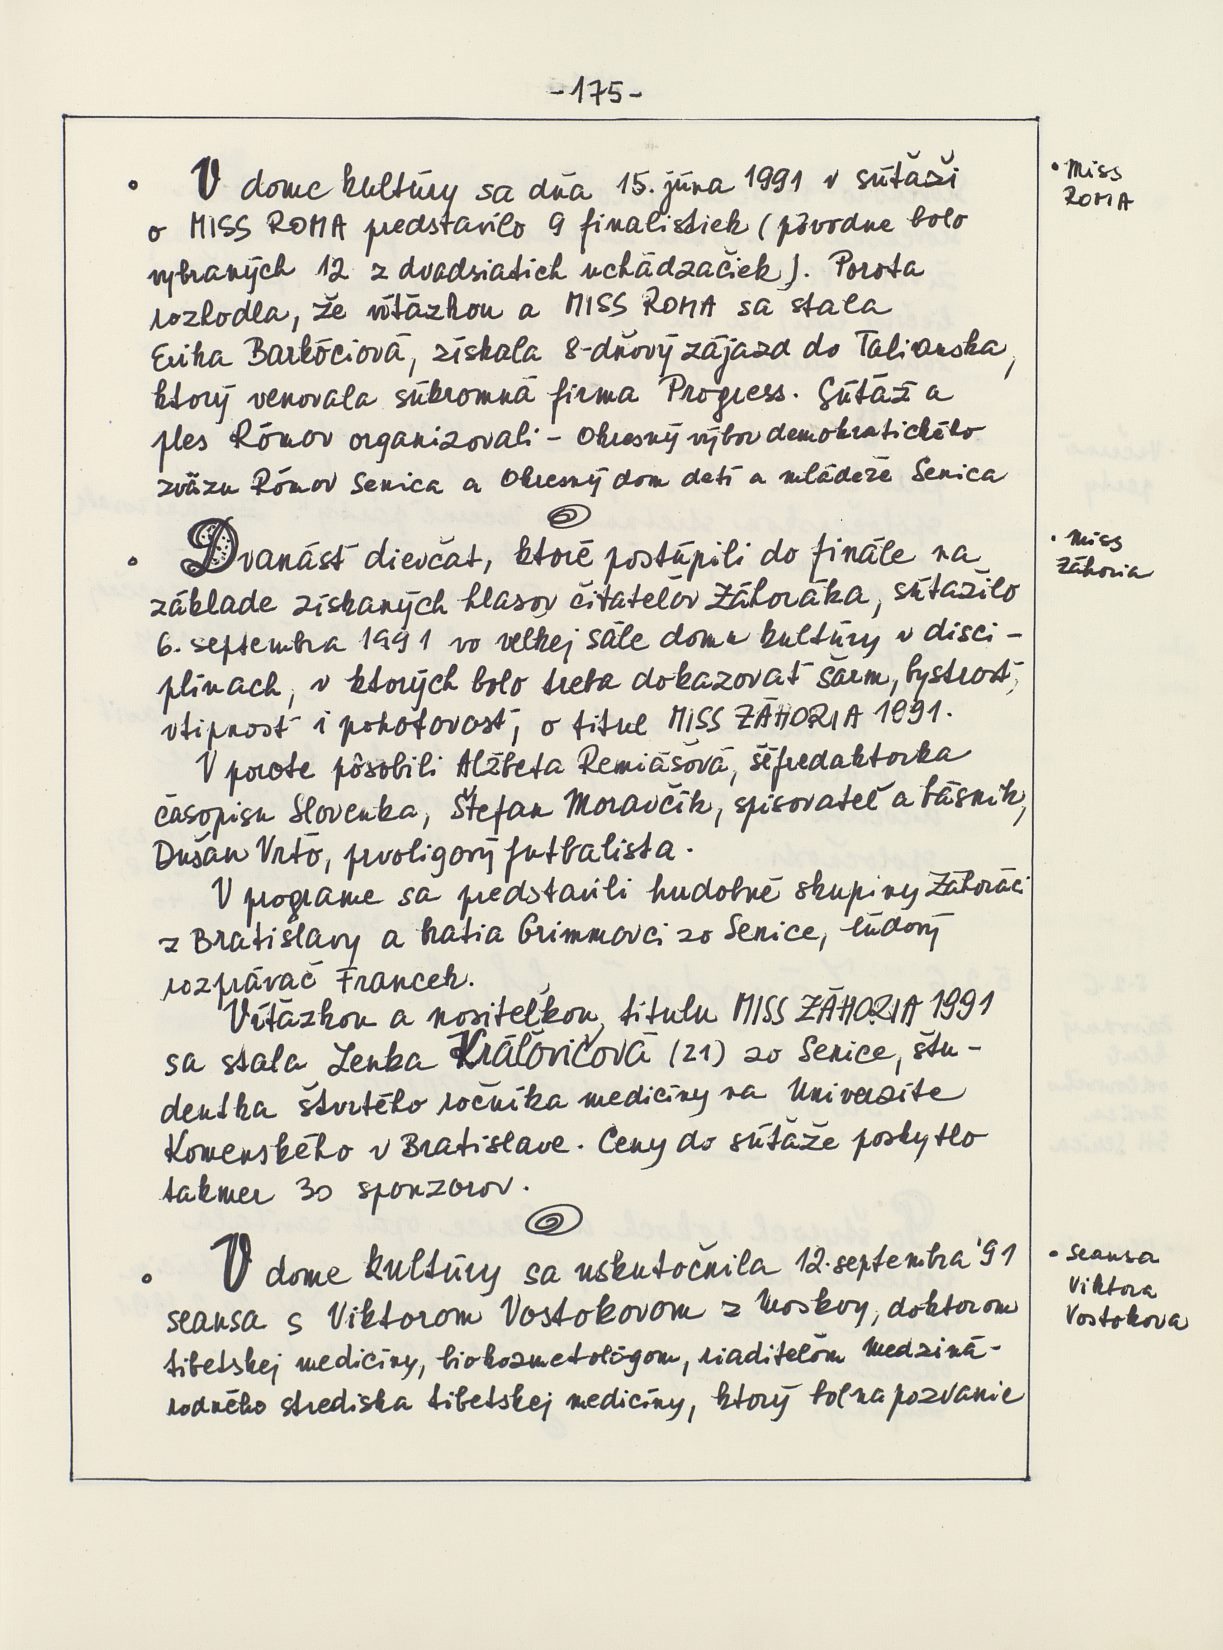 -175-
• V dome kultúry sa dňa 15. júna 1991 v súťaži
o MISS ROMA predstavilo 9 finalistiek (pôvodne bolo
vybraných 12 z dvadsiatich uchádzačiek). Porota
rozhodla, že víťazkou a MISS ROMA sa stala
Erika Barkóciová, získala 8-dňový zájazd do Talianska,
ktorý venovala súkromná firma Progress. Súťaž a
ples Rómov organizovali - Okresný výbor demokratického
zväzu Rómov Senica a Okresný dom detí a mládeže Senica
• Miss
ROMA
• Dvanásť dievčat, ktoré postúpili do finále na
základe získaných hlasov čitateľov Záhoráka, súťažilo
6. septembra 1991 vo veľkej sále domu kultúry v disci-
plínach, v ktorých bolo treba dokazovať šarm, bystrosť,
vtipnosť i pohotovosť, o titul MISS ZÁHORIA 1991.
V porote pôsobili Alžbeta Remiášová, šéfredaktorka
časopisu Slovenka, Štefan Moravčík, spisovateľ a básnik,
Dušan Vrťo, prvoligový futbalista.
V programe sa predstavili hudobné skupiny Záhoráci
z Bratislavy a bratia Grimmovci zo Senice, ľudový
rozprávač Francek.
Víťazkou a nositeľkou titulu MISS ZÁHORIA 1991
sa stala Lenka Kráľovičová (21) zo Senice, štu-
dentka štvrtého ročníka medicíny na Univerzite
Komenského v Bratislave. Ceny do súťaže poskytlo
takmer 30 sponzorov.
• Miss
Záhoria
• V dome kultúry sa uskutočnila 12. septembra '91
seansa s Viktorom Vostokovom z Moskvy, doktorom
tibetskej medicíny, biokozmetológom, riaditeľom Medziná-
rodného strediska tibetskej medicíny, ktorý bol na pozvanie
• seansa
Viktora
Vostokova